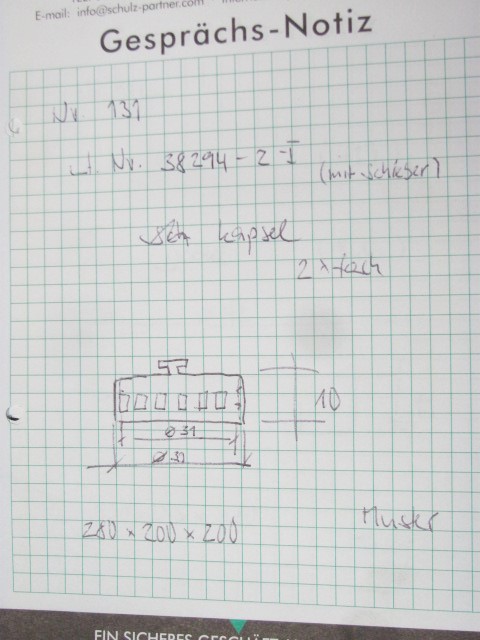 E-mail: info@schulz-partner.com
Gesprächs-Notiz
Nr. 131
Nr. 38294-2-I (mit Schieber)
kapsel
2 x-fach
10
ø 31
280 x 200 x 200
Muster